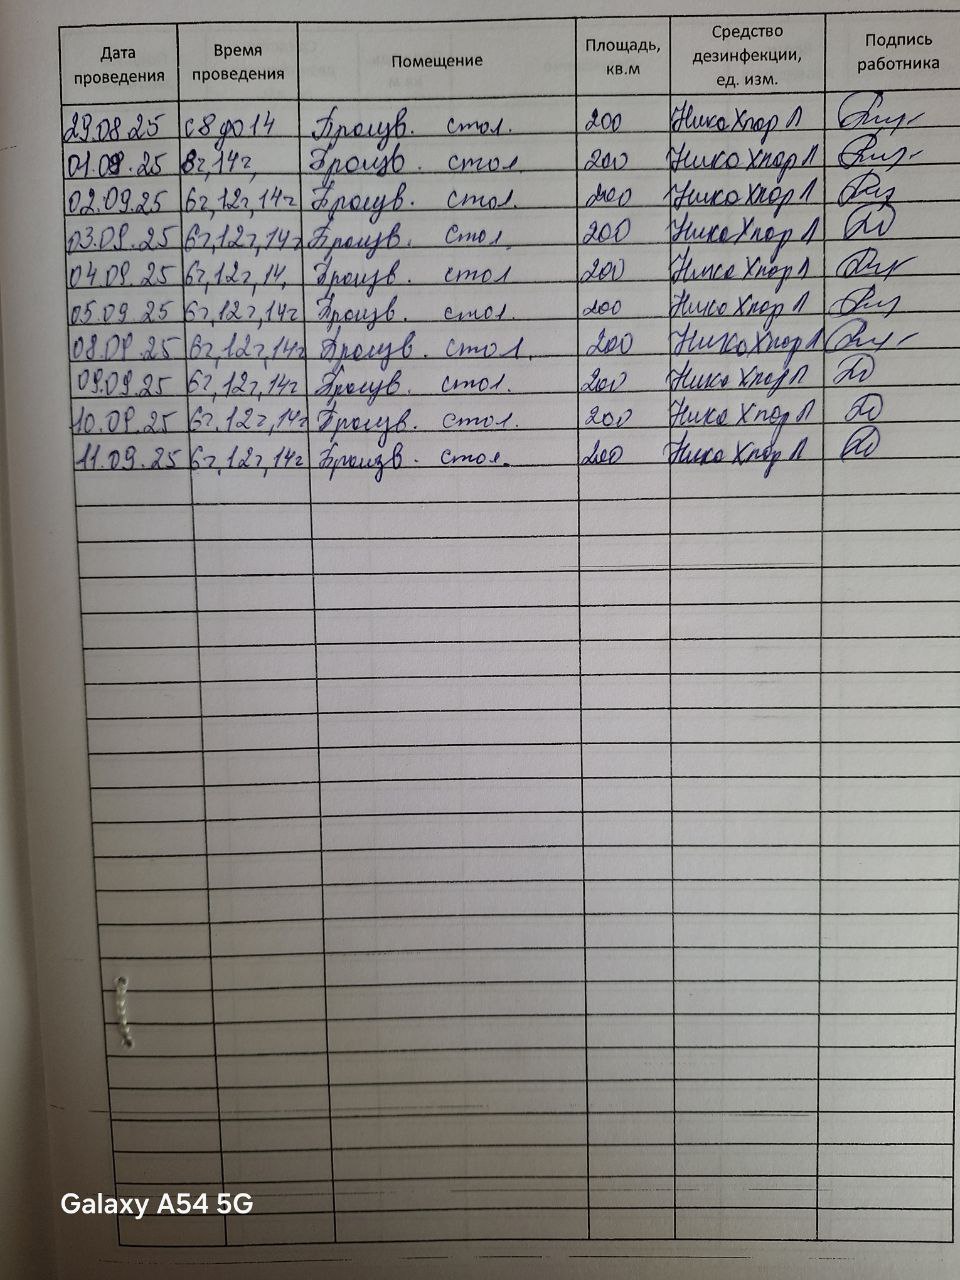 Дата проведения Время проведения Помещение Площадь, кв.м Средство дезинфекции, ед. изм. Подпись работника
29.08.25 с 8 до 14 Произв. стол. 200 НикаХлор Л
01.09.25 8ч,14ч, Произв. стол 200 Ника Хлор Л
02.09.25 6ч,12ч,14ч Произв. стол. 200 Ника Хлор Л
03.09.25 6ч,12ч,14ч Произв. стол. 200 Ника Хлор Л
04.09.25 6ч,12ч,14. Произв. стол 200 Ника Хлор Л
05.09.25 6ч,12ч,14ч Произв. стол. 200 Ника Хлор Л
08.09.25 6ч,12ч,14ч Произв. стол. 200 НикаХлор Л
09.09.25 6ч,12ч,14ч Произв. стол. 200 Ника Хлор Л
10.09.25 6ч.12ч,14ч Произв. стол. 200 Ника Хлор Л
11.09.25 6ч,12ч,14ч Произв. стол. 200 Ника Хлор Л
Galaxy A54 5G